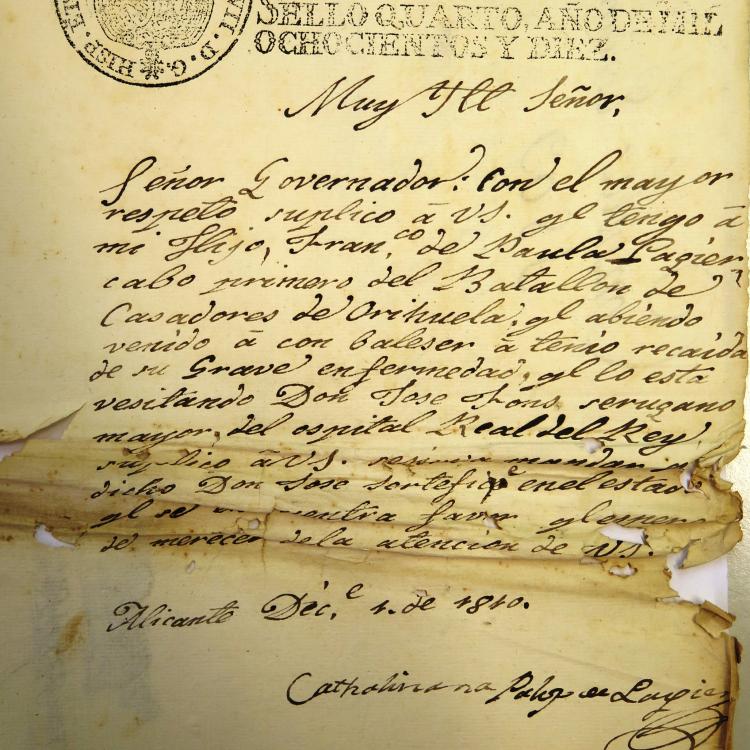 VII · D · G · HISP · E
SELLO QUARTO, AÑO DE MIL
OCHOCIENTOS Y DIEZ.
Muy Yll Señor,
Señor Governador: Con el mayor
respeto suplico â VS. ql tengo â
mi Hijo, Fran.co de Paula Lagier
cabo primero del Batallon de
Casadores de Orihuela, ql abiendo
venido â con baleser â tenio recaida
de su Grave enfermedad, ql lo esta
vesitando Don Jose Fons serugano
mayor, del ospital Real del Rey,
suplico â VS. mandar
dicho Don Jose sertefiqe en el estado
ql se favor
se merecer de la atencion de VS.
Alicante Dec.e 1. de 1810.
Catholina Lagier